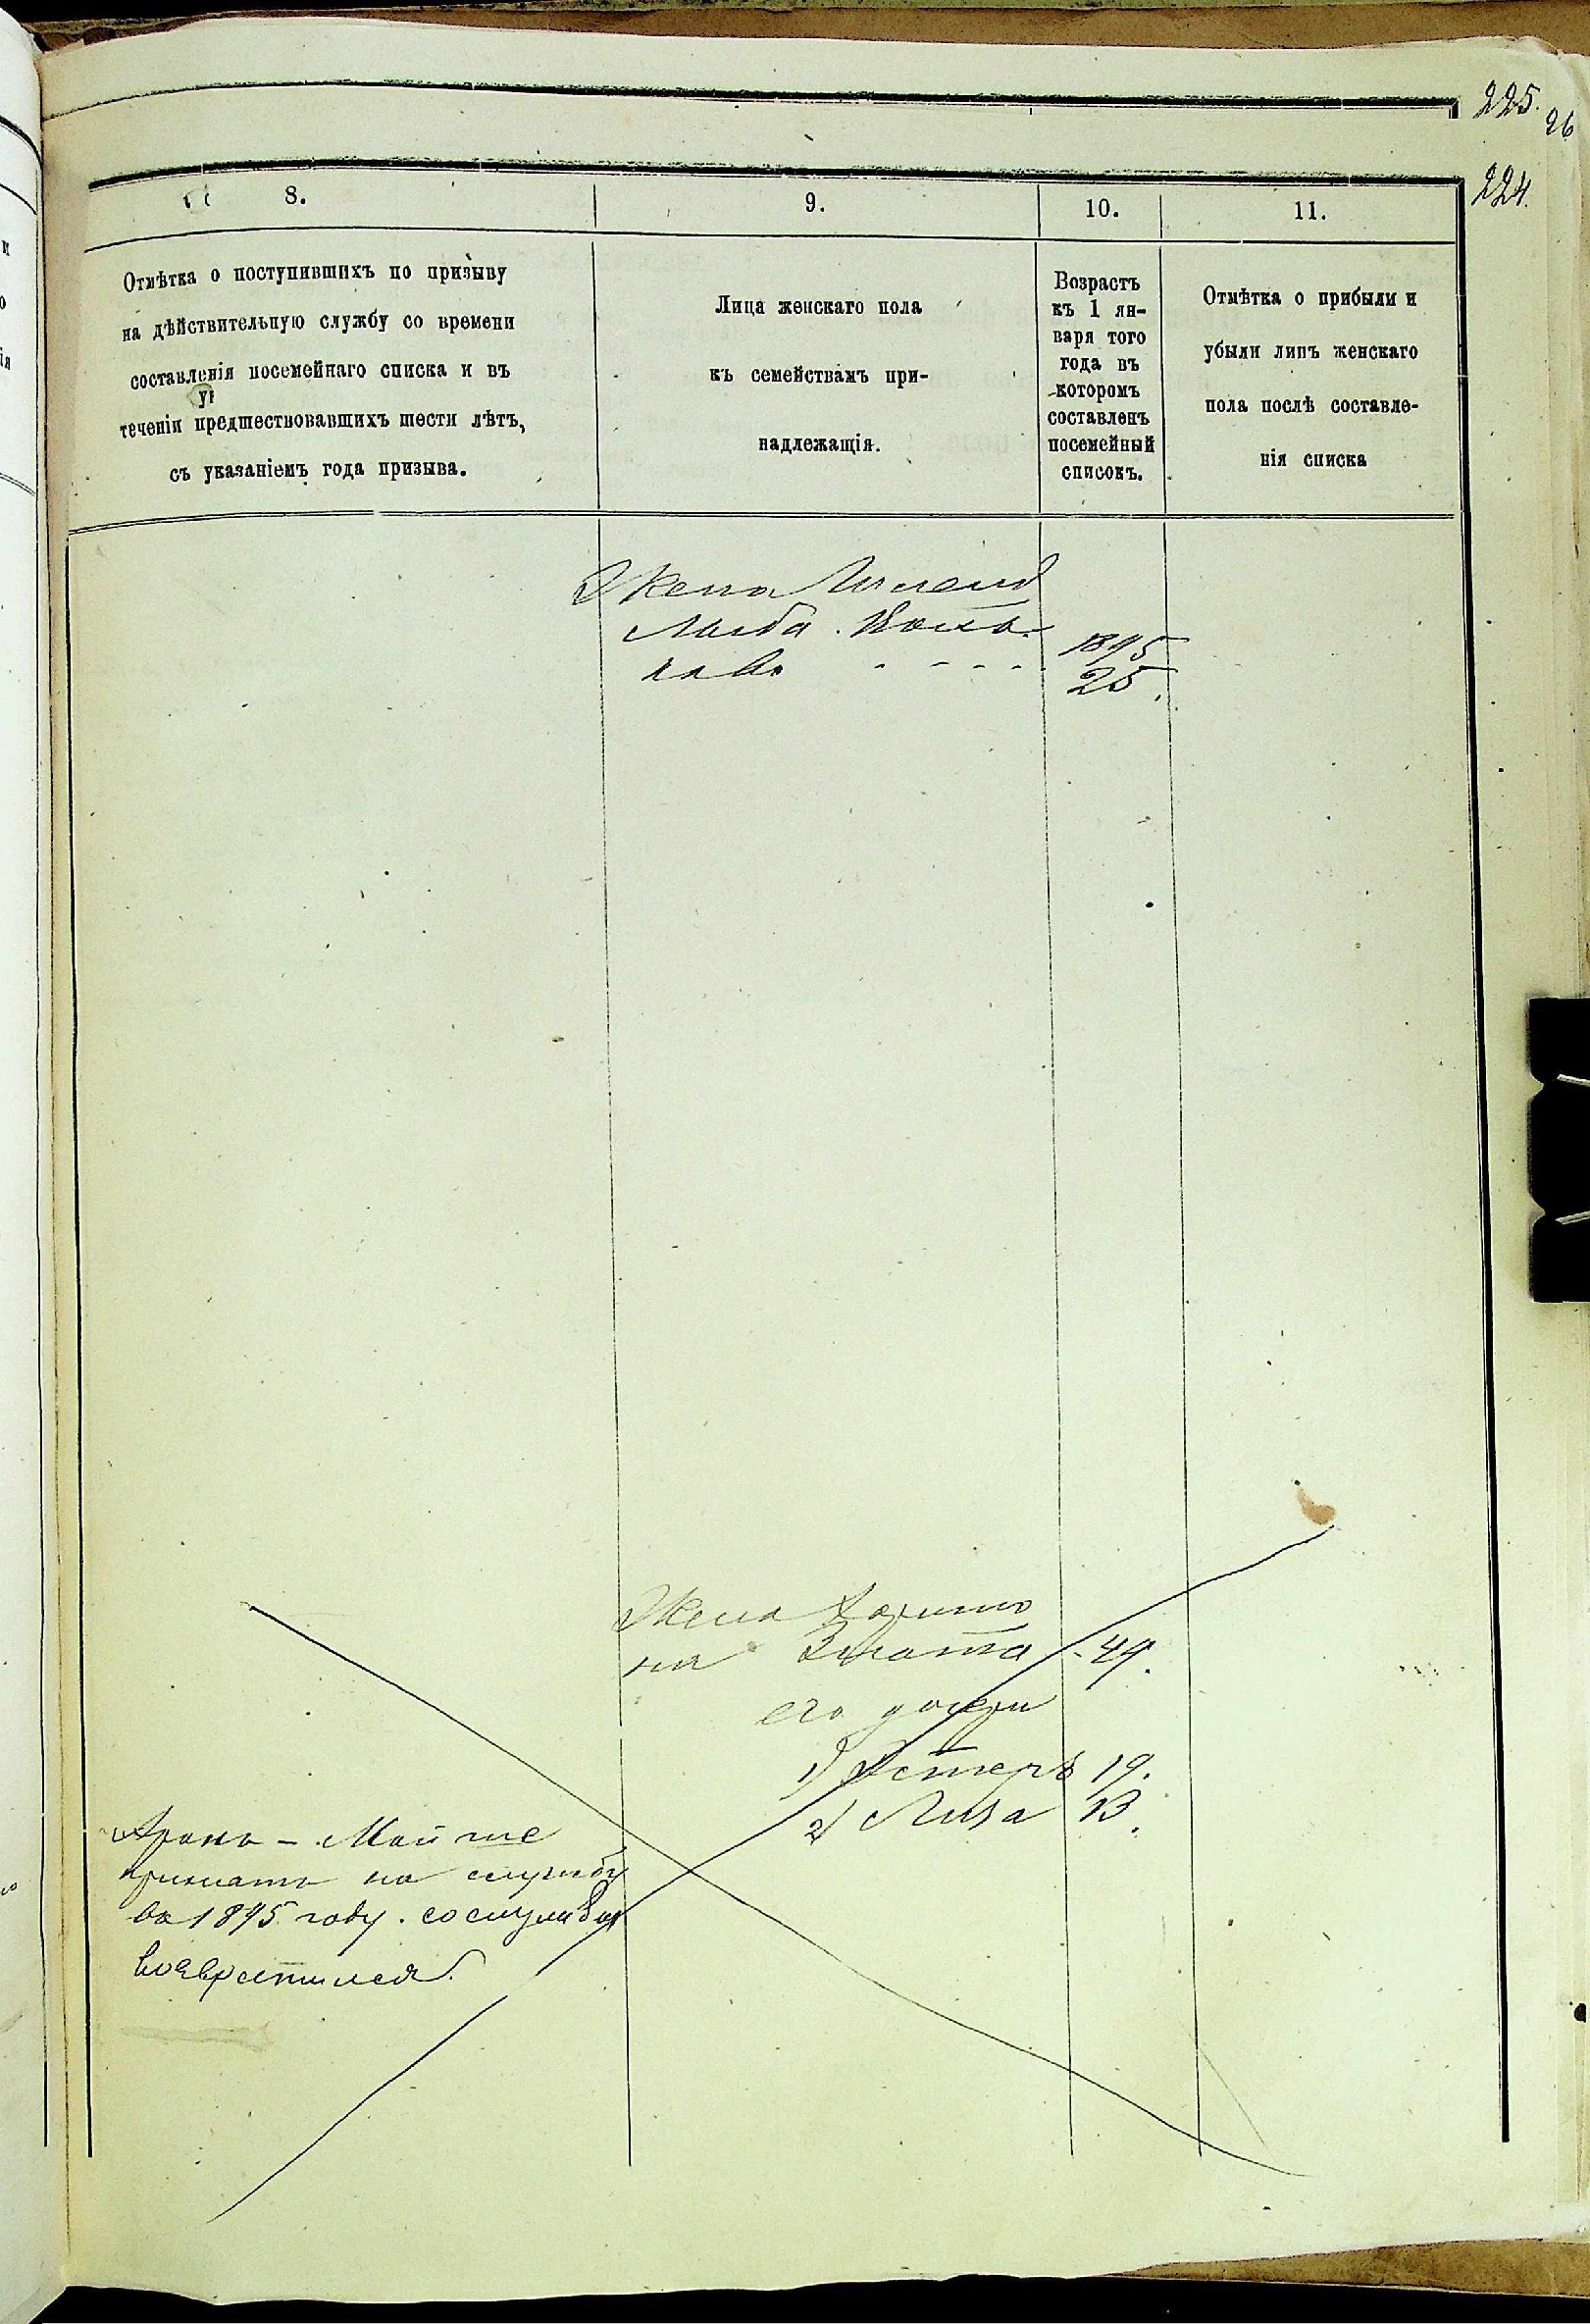 225.
26
224.
8.
9.
10.
11.
Отмѣтка о поступившихъ по призыву
на дѣйствительную службу со времени
составленія посемейнаго списка и въ
теченіи предшествовавшихъ шести лѣтъ,
съ указаніемъ года призыва.
Лица женскаго пола
къ семействамъ при-
надлежащія.
Возрастъ
къ 1 ян-
варя того
года въ
которомъ
составленъ
посемейный
списокъ.
Отмѣтка о прибыли и
убыли лицъ женскаго
пола послѣ составле-
нія списка
Жена
1895
25.
Жена
на Злата - 49.
его дочери
1) Эстеръ 19.
2) Лиза 13.
Аронъ - Мойше
принятъ на службу
въ 1895 году.
возвратился.